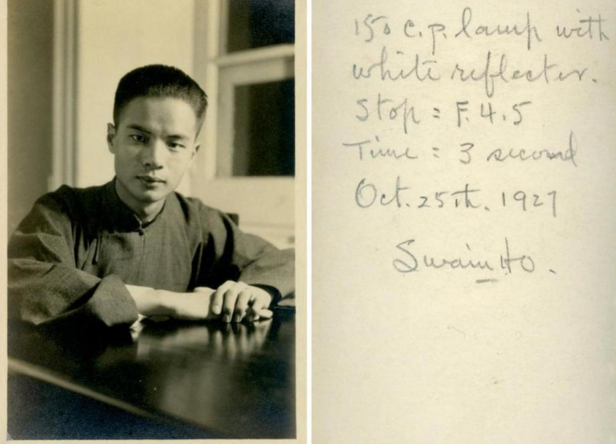 150 c.p. lamp with
white reflector.
Stop : F. 4.5
Time : 3 second
Oct. 25th. 1927
Swain Ho.